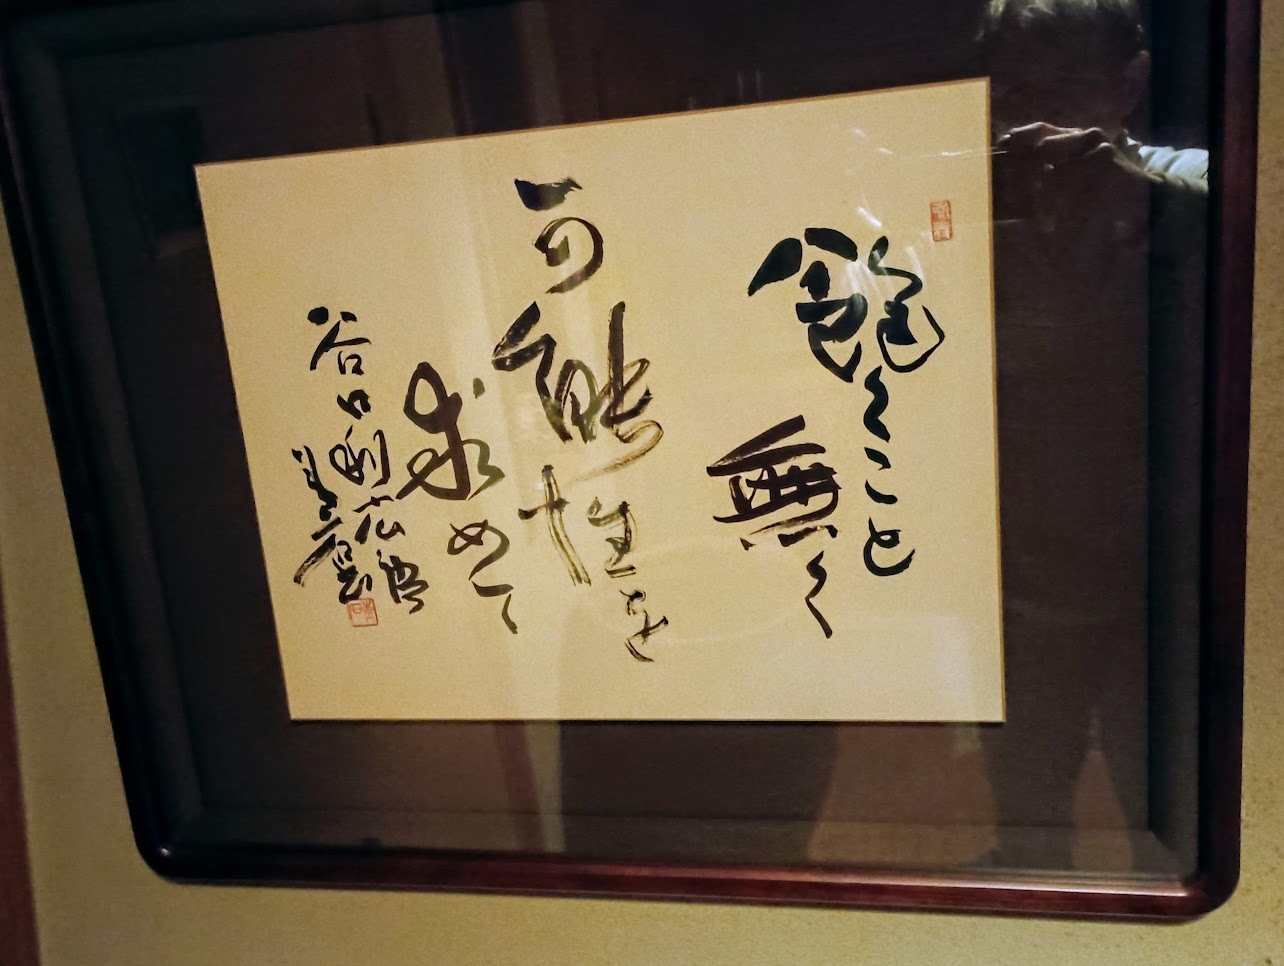 飽くこと
無く
可能性を
求めて
谷口利広